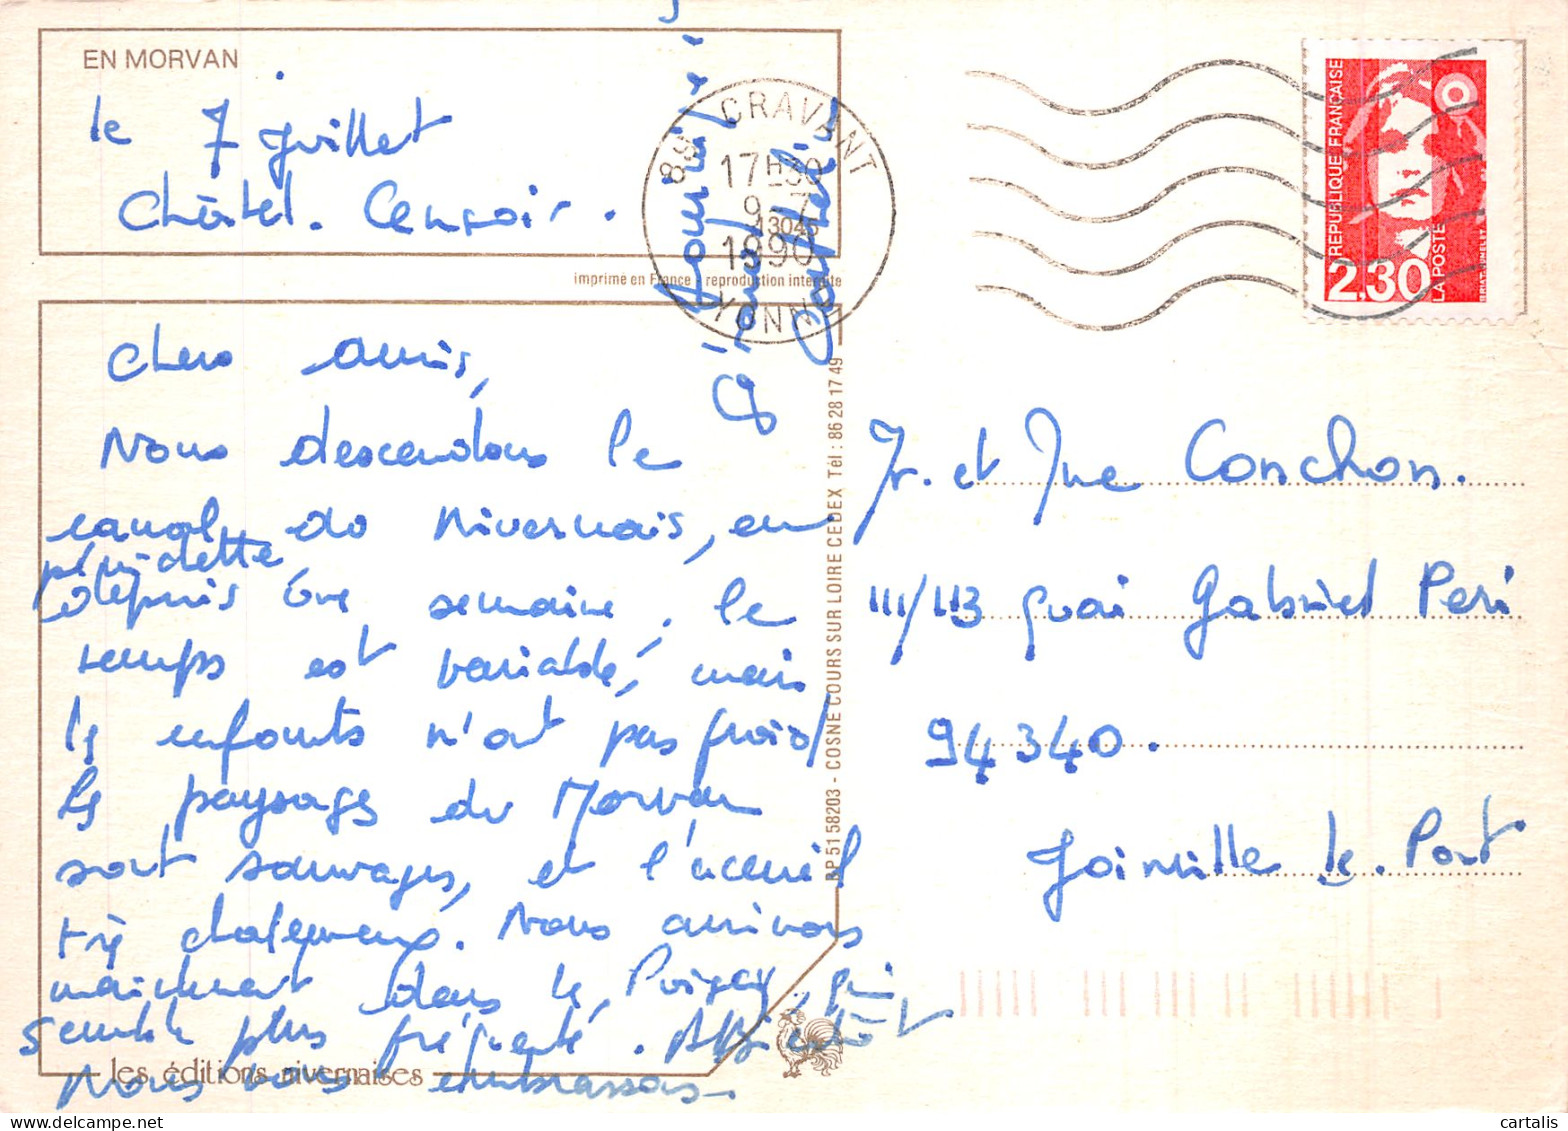 EN MORVAN
le 7 Juillet
Châtel. Censoir.
imprimé en France - reproduction interdite
Chers amis,
Nous descendons le
canal du Nivernais, en
pénichette
depuis une semaine. le
temps est variable, mais
les enfants n'ont pas froid!
les paysages du Morvan
sont sauvages, et l'accueil
très chaleureux. Nous arrivons
maintenant dans le, qui
semble plus fréquenté. A Bientôt
Nous vous embrassons.
les éditions nivernaises
BP 51 58203 - COSNE COURS SUR LOIRE CEDEX Tél : 86 28 17 49
89 CRAVANT
17H30
9-7
1990
YONNE
13045
REPUBLIQUE FRANÇAISE
LA POSTE
2,30
Mr. et Mme Conchon.
111/113 quai Gabriel Peri
94340.
Joinville le. Pont
cartalis